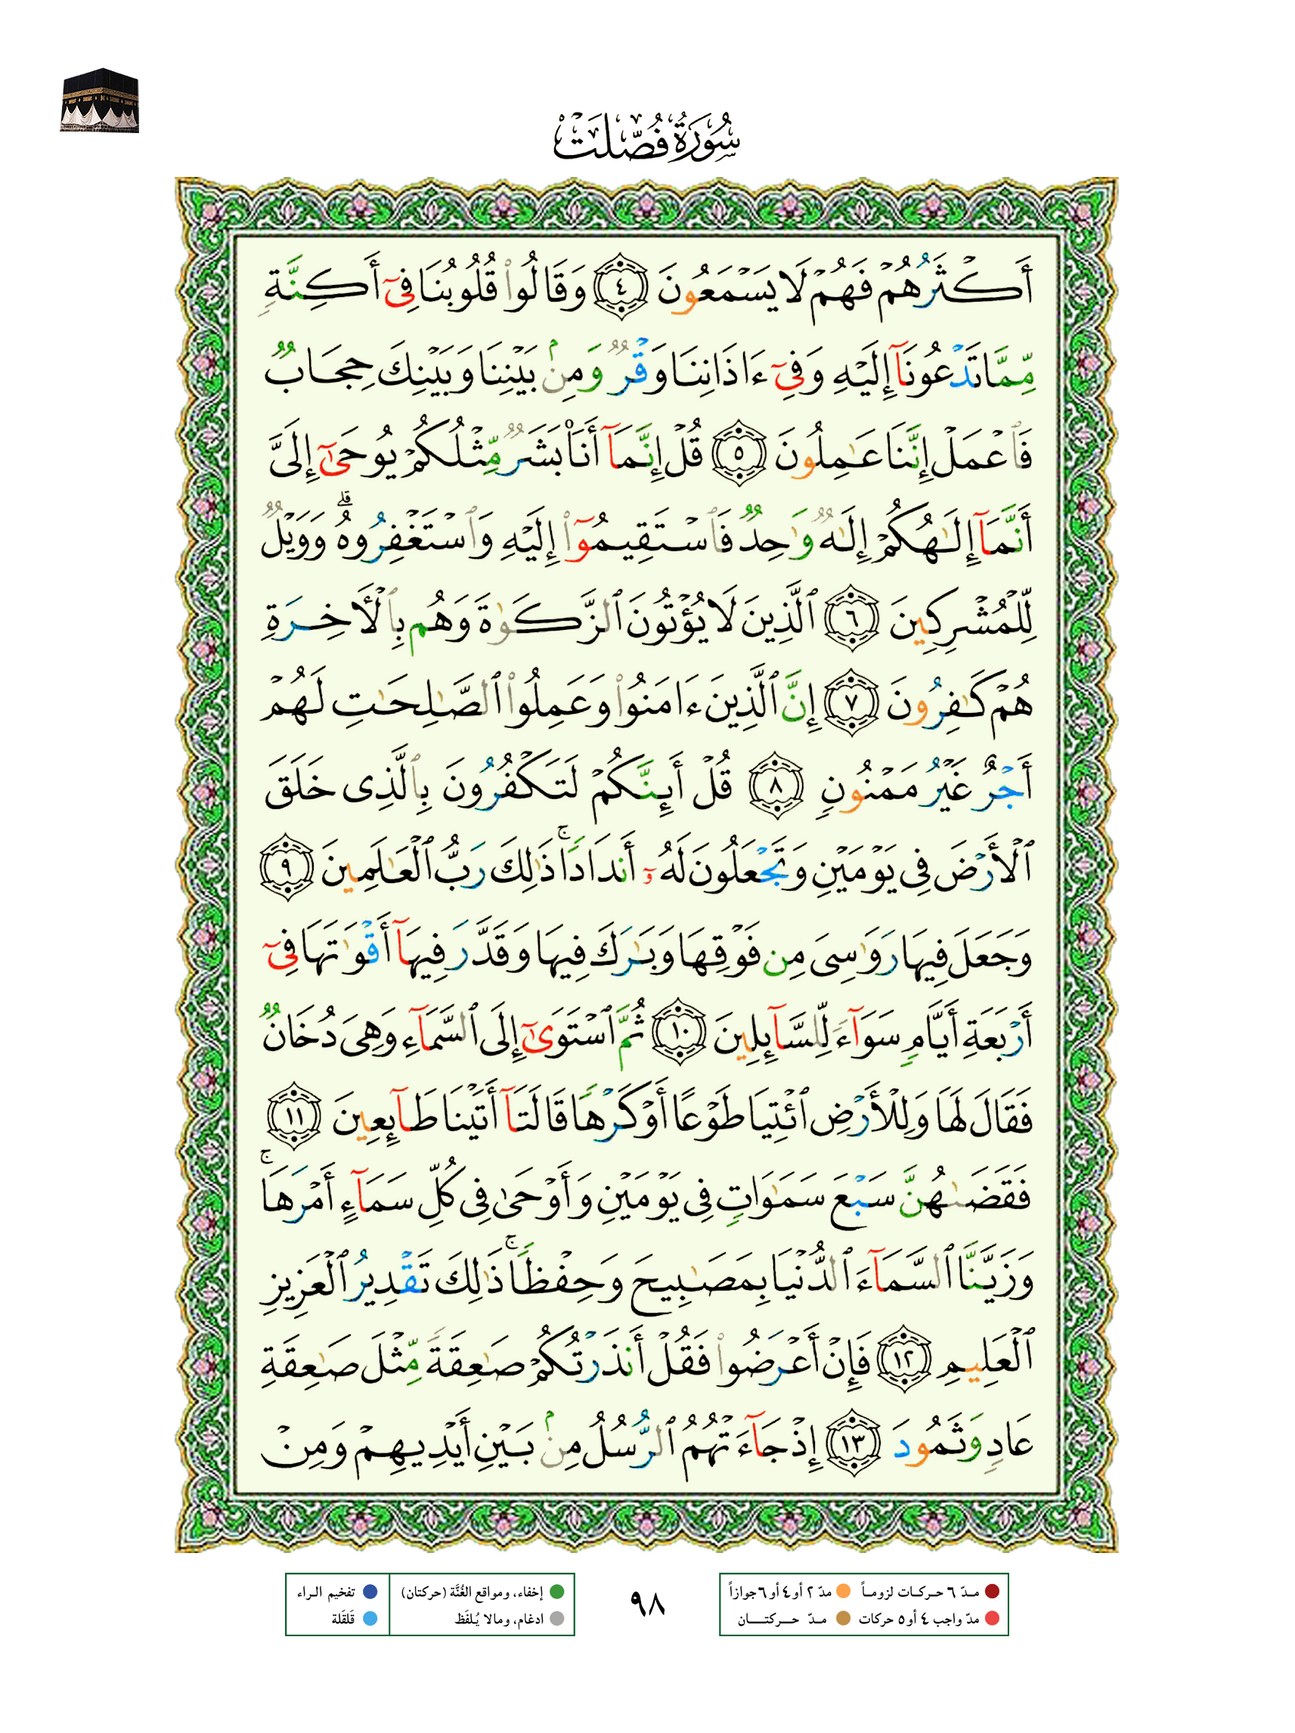 سُورَةُ فُصِّلَتْ
أَكْثَرُهُمْ فَهُمْ لَا يَسْمَعُونَ ﴿٤﴾ وَقَالُوا۟ قُلُوبُنَا فِىٓ أَكِنَّةٍ
مِّمَّا تَدْعُونَآ إِلَيْهِ وَفِىٓ ءَاذَانِنَا وَقْرٌ وَمِنۢ بَيْنِنَا وَبَيْنِكَ حِجَابٌ
فَٱعْمَلْ إِنَّنَا عَـٰمِلُونَ ﴿٥﴾ قُلْ إِنَّمَآ أَنَا۠ بَشَرٌ مِّثْلُكُمْ يُوحَىٰٓ إِلَىَّ
أَنَّمَآ إِلَـٰهُكُمْ إِلَـٰهٌ وَٰحِدٌ فَٱسْتَقِيمُوٓا۟ إِلَيْهِ وَٱسْتَغْفِرُوهُ ۗ وَوَيْلٌ
لِّلْمُشْرِكِينَ ﴿٦﴾ ٱلَّذِينَ لَا يُؤْتُونَ ٱلزَّكَوٰةَ وَهُم بِٱلْأَخِرَةِ
هُمْ كَـٰفِرُونَ ﴿٧﴾ إِنَّ ٱلَّذِينَ ءَامَنُوا۟ وَعَمِلُوا۟ ٱلصَّـٰلِحَـٰتِ لَهُمْ
أَجْرٌ غَيْرُ مَمْنُونٍ ﴿٨﴾ قُلْ أَئِنَّكُمْ لَتَكْفُرُونَ بِٱلَّذِى خَلَقَ
ٱلْأَرْضَ فِى يَوْمَيْنِ وَتَجْعَلُونَ لَهُۥٓ أَندَادًا ۚ ذَٰلِكَ رَبُّ ٱلْعَـٰلَمِينَ ﴿٩﴾
وَجَعَلَ فِيهَا رَوَٰسِىَ مِن فَوْقِهَا وَبَـٰرَكَ فِيهَا وَقَدَّرَ فِيهَآ أَقْوَٰتَهَا فِىٓ
أَرْبَعَةِ أَيَّامٍ سَوَآءً لِّلسَّآئِلِينَ ﴿١٠﴾ ثُمَّ ٱسْتَوَىٰٓ إِلَى ٱلسَّمَآءِ وَهِىَ دُخَانٌ
فَقَالَ لَهَا وَلِلْأَرْضِ ٱئْتِيَا طَوْعًا أَوْ كَرْهًا قَالَتَآ أَتَيْنَا طَآئِعِينَ ﴿١١﴾
فَقَضَىٰهُنَّ سَبْعَ سَمَـٰوَاتٍ فِى يَوْمَيْنِ وَأَوْحَىٰ فِى كُلِّ سَمَآءٍ أَمْرَهَا ۚ
وَزَيَّنَّا ٱلسَّمَآءَ ٱلدُّنْيَا بِمَصَـٰبِيحَ وَحِفْظًا ۚ ذَٰلِكَ تَقْدِيرُ ٱلْعَزِيزِ
ٱلْعَلِيمِ ﴿١٢﴾ فَإِنْ أَعْرَضُوا۟ فَقُلْ أَنذَرْتُكُمْ صَـٰعِقَةً مِّثْلَ صَـٰعِقَةِ
عَادٍ وَثَمُودَ ﴿١٣﴾ إِذْ جَآءَتْهُمُ ٱلرُّسُلُ مِنۢ بَيْنِ أَيْدِيهِمْ وَمِنْ
مدّ ٦ حركات لزوماً
مدّ ٢ أو ٤ أو ٦ جوازاً
مدّ واجب ٤ أو ٥ حركات
مدّ حركتان
٩٨
إخفاء، ومواقع الغُنَّة (حركتان)
تفخيم الراء
ادغام، ومالا يُلفَظ
قَلقَلة